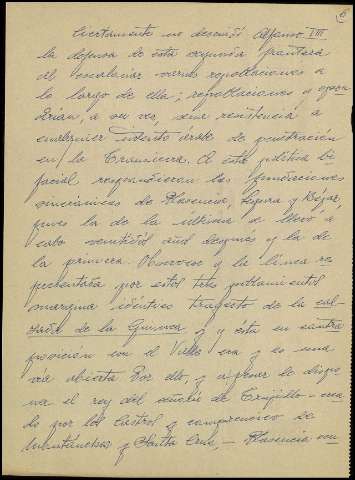 15
Ciertamente no descuidó Alfonso VIII
la defensa de esta segunda frontera
al escalonar nuevas repoblaciones a
lo largo de ella; repoblaciones q opon
drían, a su vez, una resistencia a
cualquier intento árabe de penetración
en/ la Transierra. A esta política bi
facial respondieron las fundaciones
sincrónicas de Plasencia, Segura y Béjar,
pues la de la última se llevó a
cabo veintidós años después y la de
la primera. Observese y la línea re
presentada por estos tres poblamientos
marginan idéntico trayecto de la cal-
zada de la Guinea, y y esta en
posición con el Valle era y es una
vía abierta Por ello, y a pesar de
el rey del señorío de Trujillo -
do por los Castros y comprensivo de
Montánchez y Santa Cruz, - Plasencia con